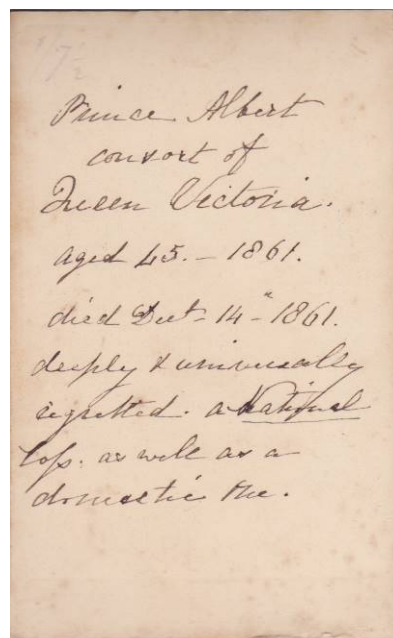 1/7½
Prince Albert
consort of
Queen Victoria.
aged 45. – 1861.
died Dec 14" 1861.
deeply & universally
regretted. a National
loss. as well as a
domestic one.